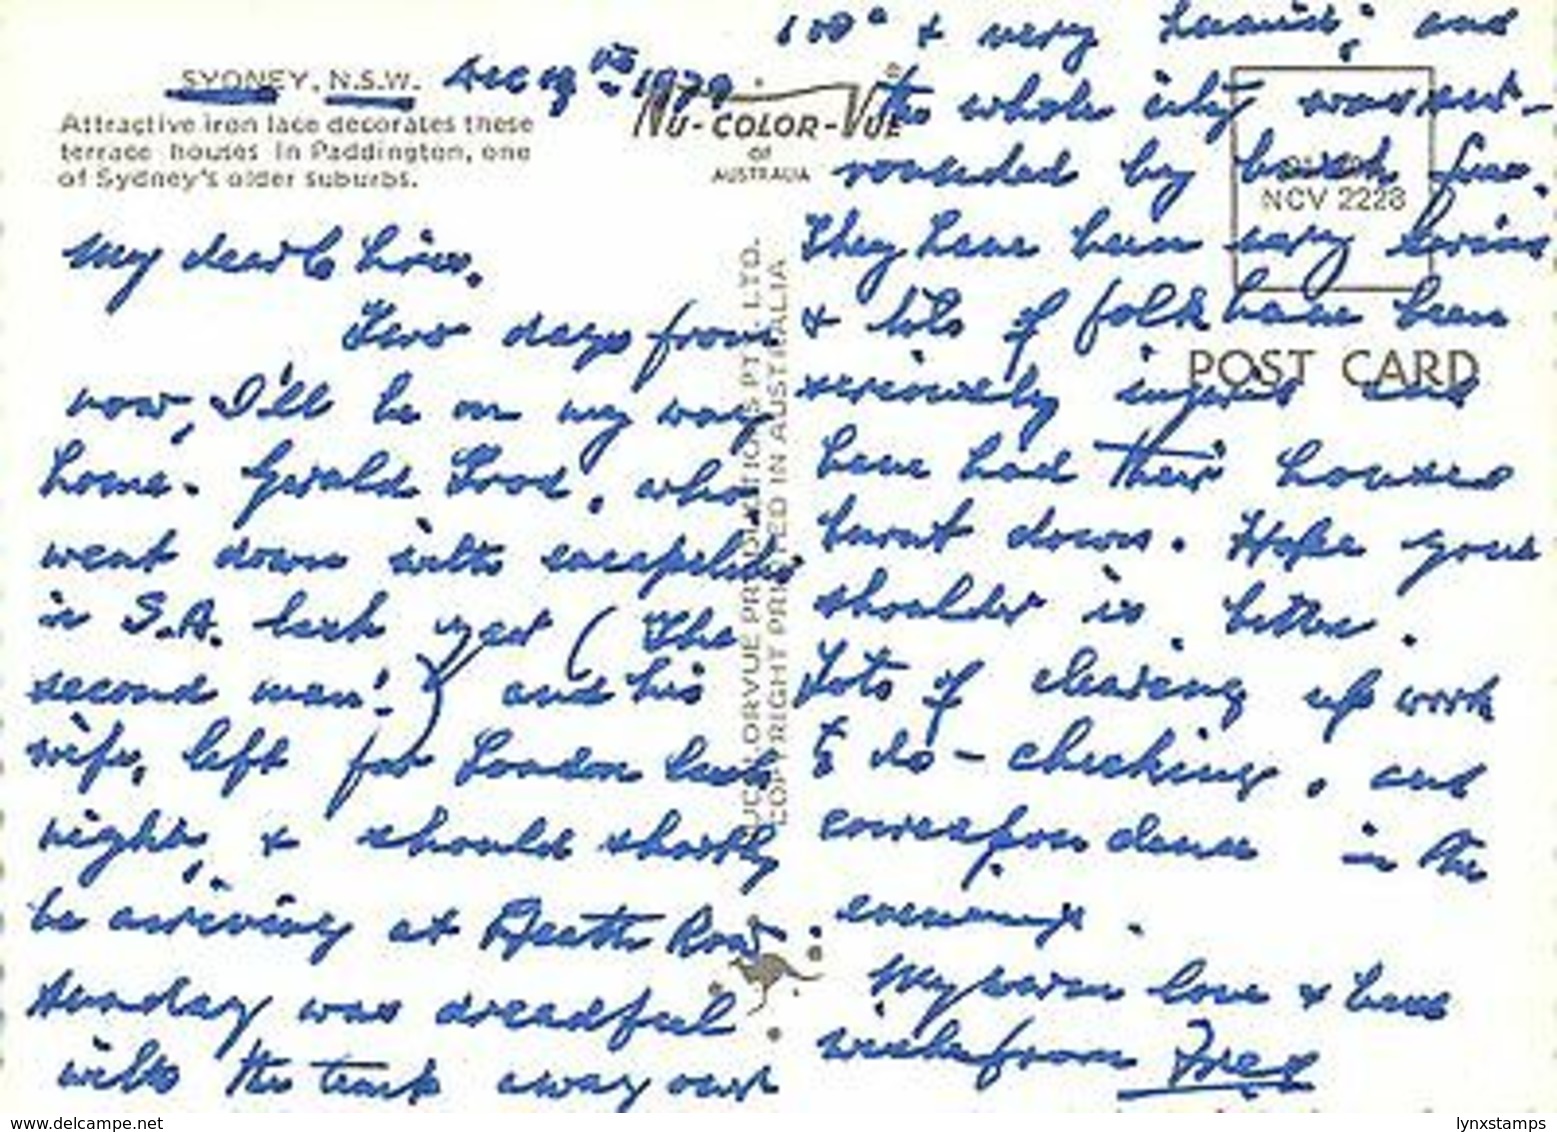 SYDNEY, N.S.W. Dec 19th 1979
Attractive iron lace decorates these
terrace houses in Paddington, one
of Sydney's older suburbs.
NU-COLOR-VUE
OF
AUSTRALIA
My dear
Two days from
now, I'll be on my way
home. Gerald, who
went down with encephalitis
in S.A. last year (The
second man!) and his
wife, left for London last
night, & should shortly
be arriving at Heath Row.
Sunday was dreadful
with the temp away over
NUCOLORVUE PRODUCTIONS PTY. LTD.
COPYRIGHT PRINTED IN AUSTRALIA
100° & very humid, and
the whole city was sur-
rounded by bush fires.
They have been very serious
& lots of folk have been
seriously injured and
have had their houses
burnt down. Hope your
shoulder is better.
Lots of clearing up work
to do - checking, and
correspondence in the
evenings.
My warm love & best
wishes from Fred
NCV 2228
POST CARD
delcampe.net
lynxstamps